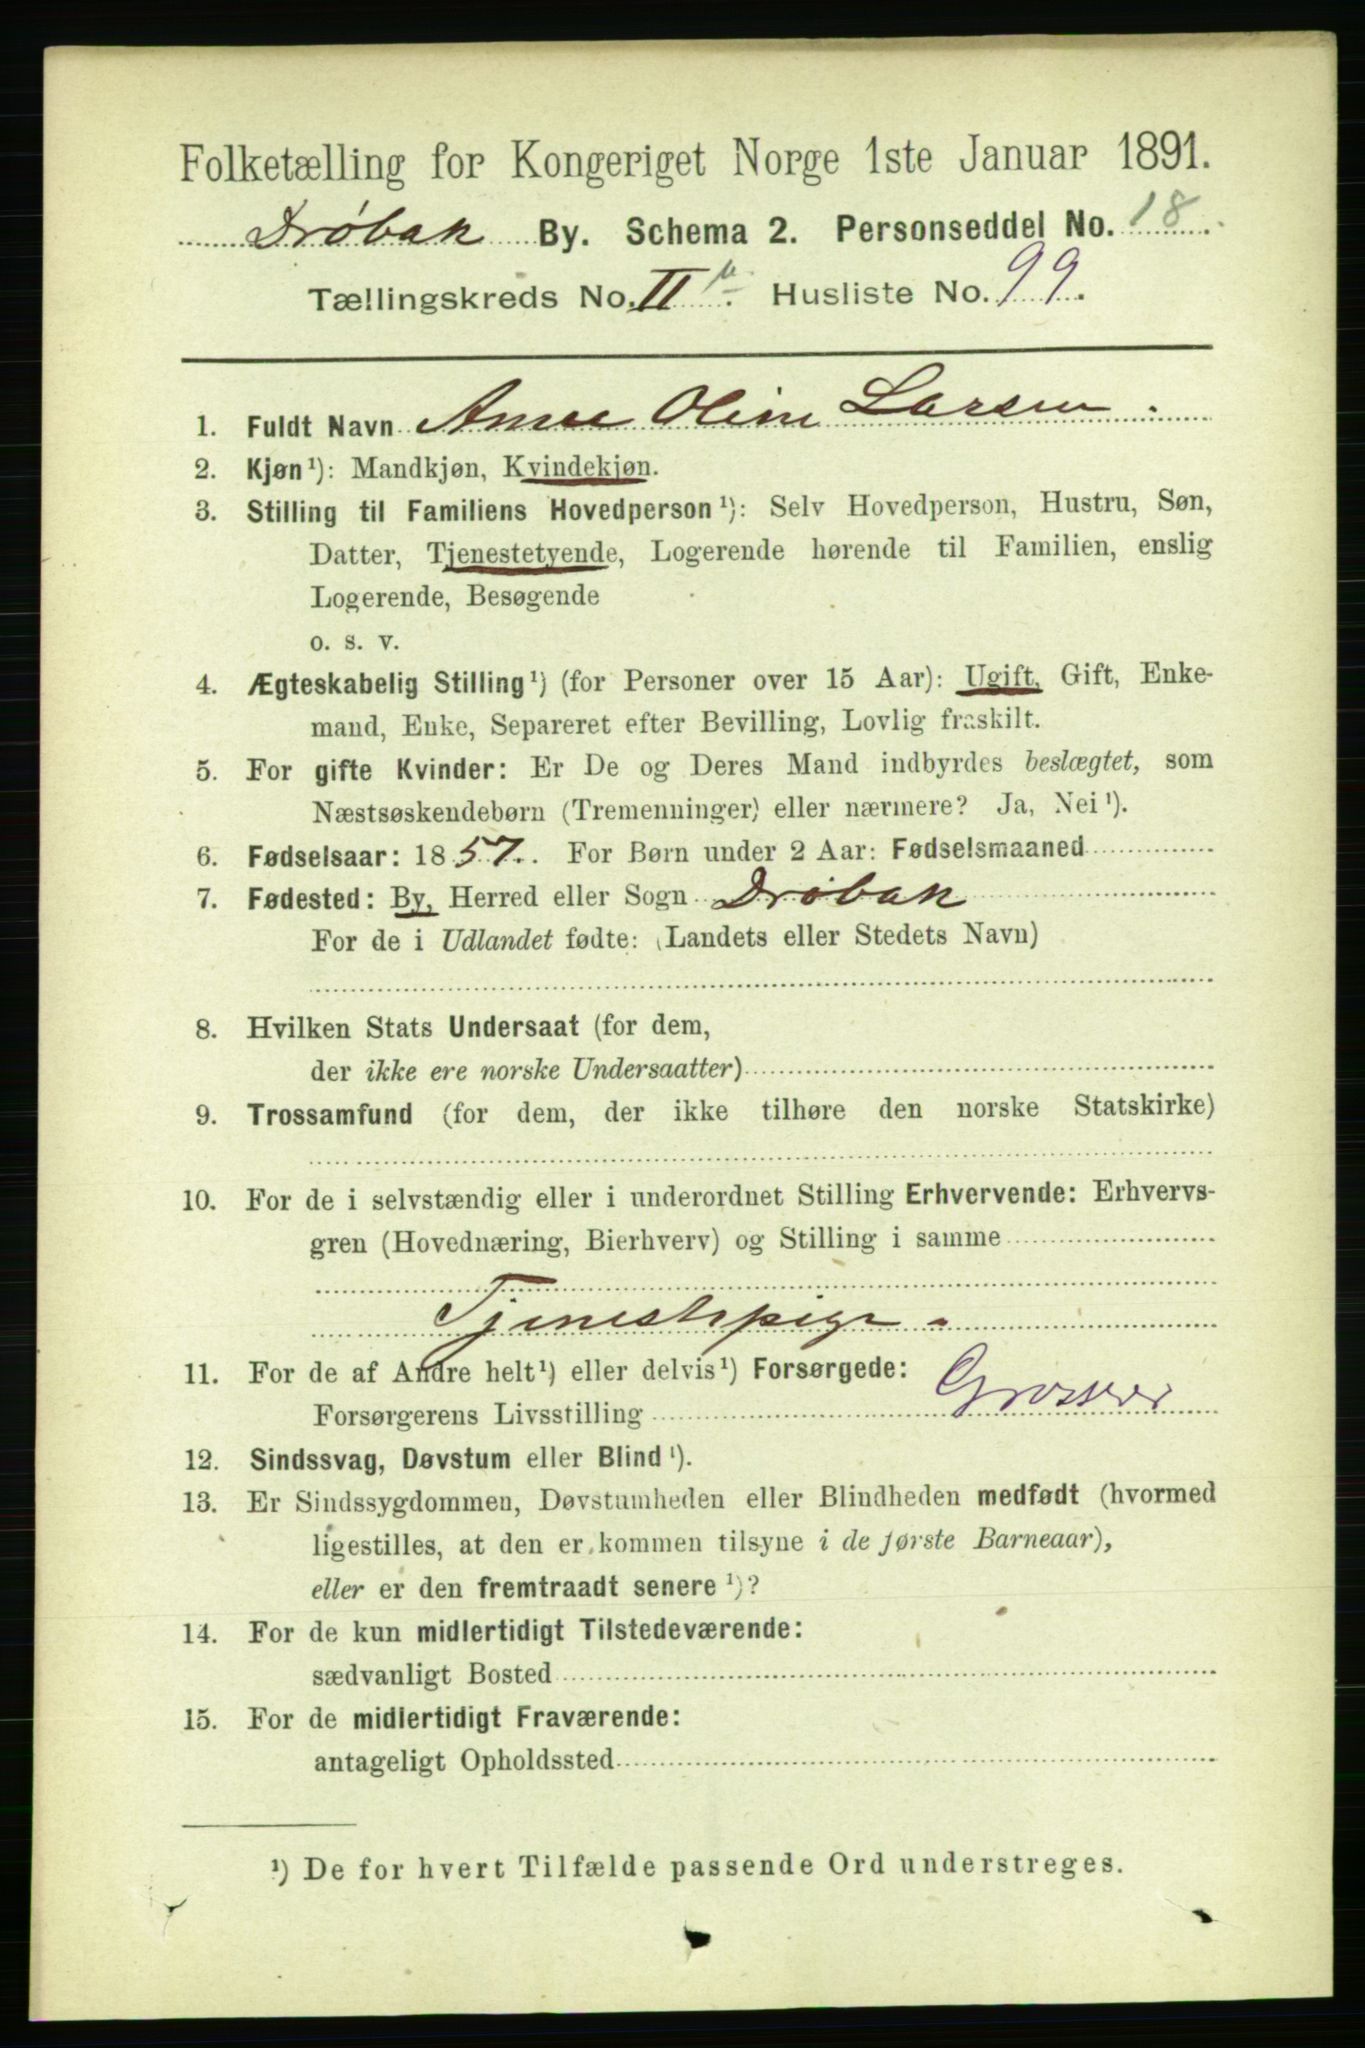 Folketælling for Kongeriget Norge 1ste Januar 1891.
Drøbak By. Schema 2. Personseddel No. 18.
Tællingskreds No. II Husliste No. 99.
1. Fuldt Navn Anne Oline Larsen.
2. Kjøn¹): Mandkjøn, Kvindekjøn.
3. Stilling til Familiens Hovedperson¹): Selv Hovedperson, Hustru, Søn,
Datter, Tjenestetyende, Logerende hørende til Familien, enslig
Logerende, Besøgende
o. s. v.
4. Ægteskabelig Stilling¹) (for Personer over 15 Aar): Ugift, Gift, Enke-
mand, Enke, Separeret efter Bevilling, Lovlig fraskilt.
5. For gifte Kvinder: Er De og Deres Mand indbyrdes beslægtet, som
Næstsøskendebørn (Tremenninger) eller nærmere? Ja, Nei¹).
6. Fødselsaar: 1857. For Børn under 2 Aar: Fødselsmaaned
7. Fødested: By, Herred eller Sogn Drøbak
For de i Udlandet fødte: (Landets eller Stedets Navn)
8. Hvilken Stats Undersaat (for dem,
der ikke ere norske Undersaatter)
9. Trossamfund (for dem, der ikke tilhøre den norske Statskirke)
10. For de i selvstændig eller i underordnet Stilling Erhvervende: Erhvervs-
gren (Hovednæring, Bierhverv) og Stilling i samme
Tjenestepige.
11. For de af Andre helt¹) eller delvis¹) Forsørgede:
Forsørgerens Livsstilling Grosser
12. Sindssvag, Døvstum eller Blind¹).
13. Er Sindssygdommen, Døvstumheden eller Blindheden medfødt (hvormed
ligestilles, at den er kommen tilsyne i de første Barneaar),
eller er den fremtraadt senere¹)?
14. For de kun midlertidigt Tilstedeværende:
sædvanligt Bosted
15. For de midlertidigt Fraværende:
antageligt Opholdssted
¹) De for hvert Tilfælde passende Ord understreges.